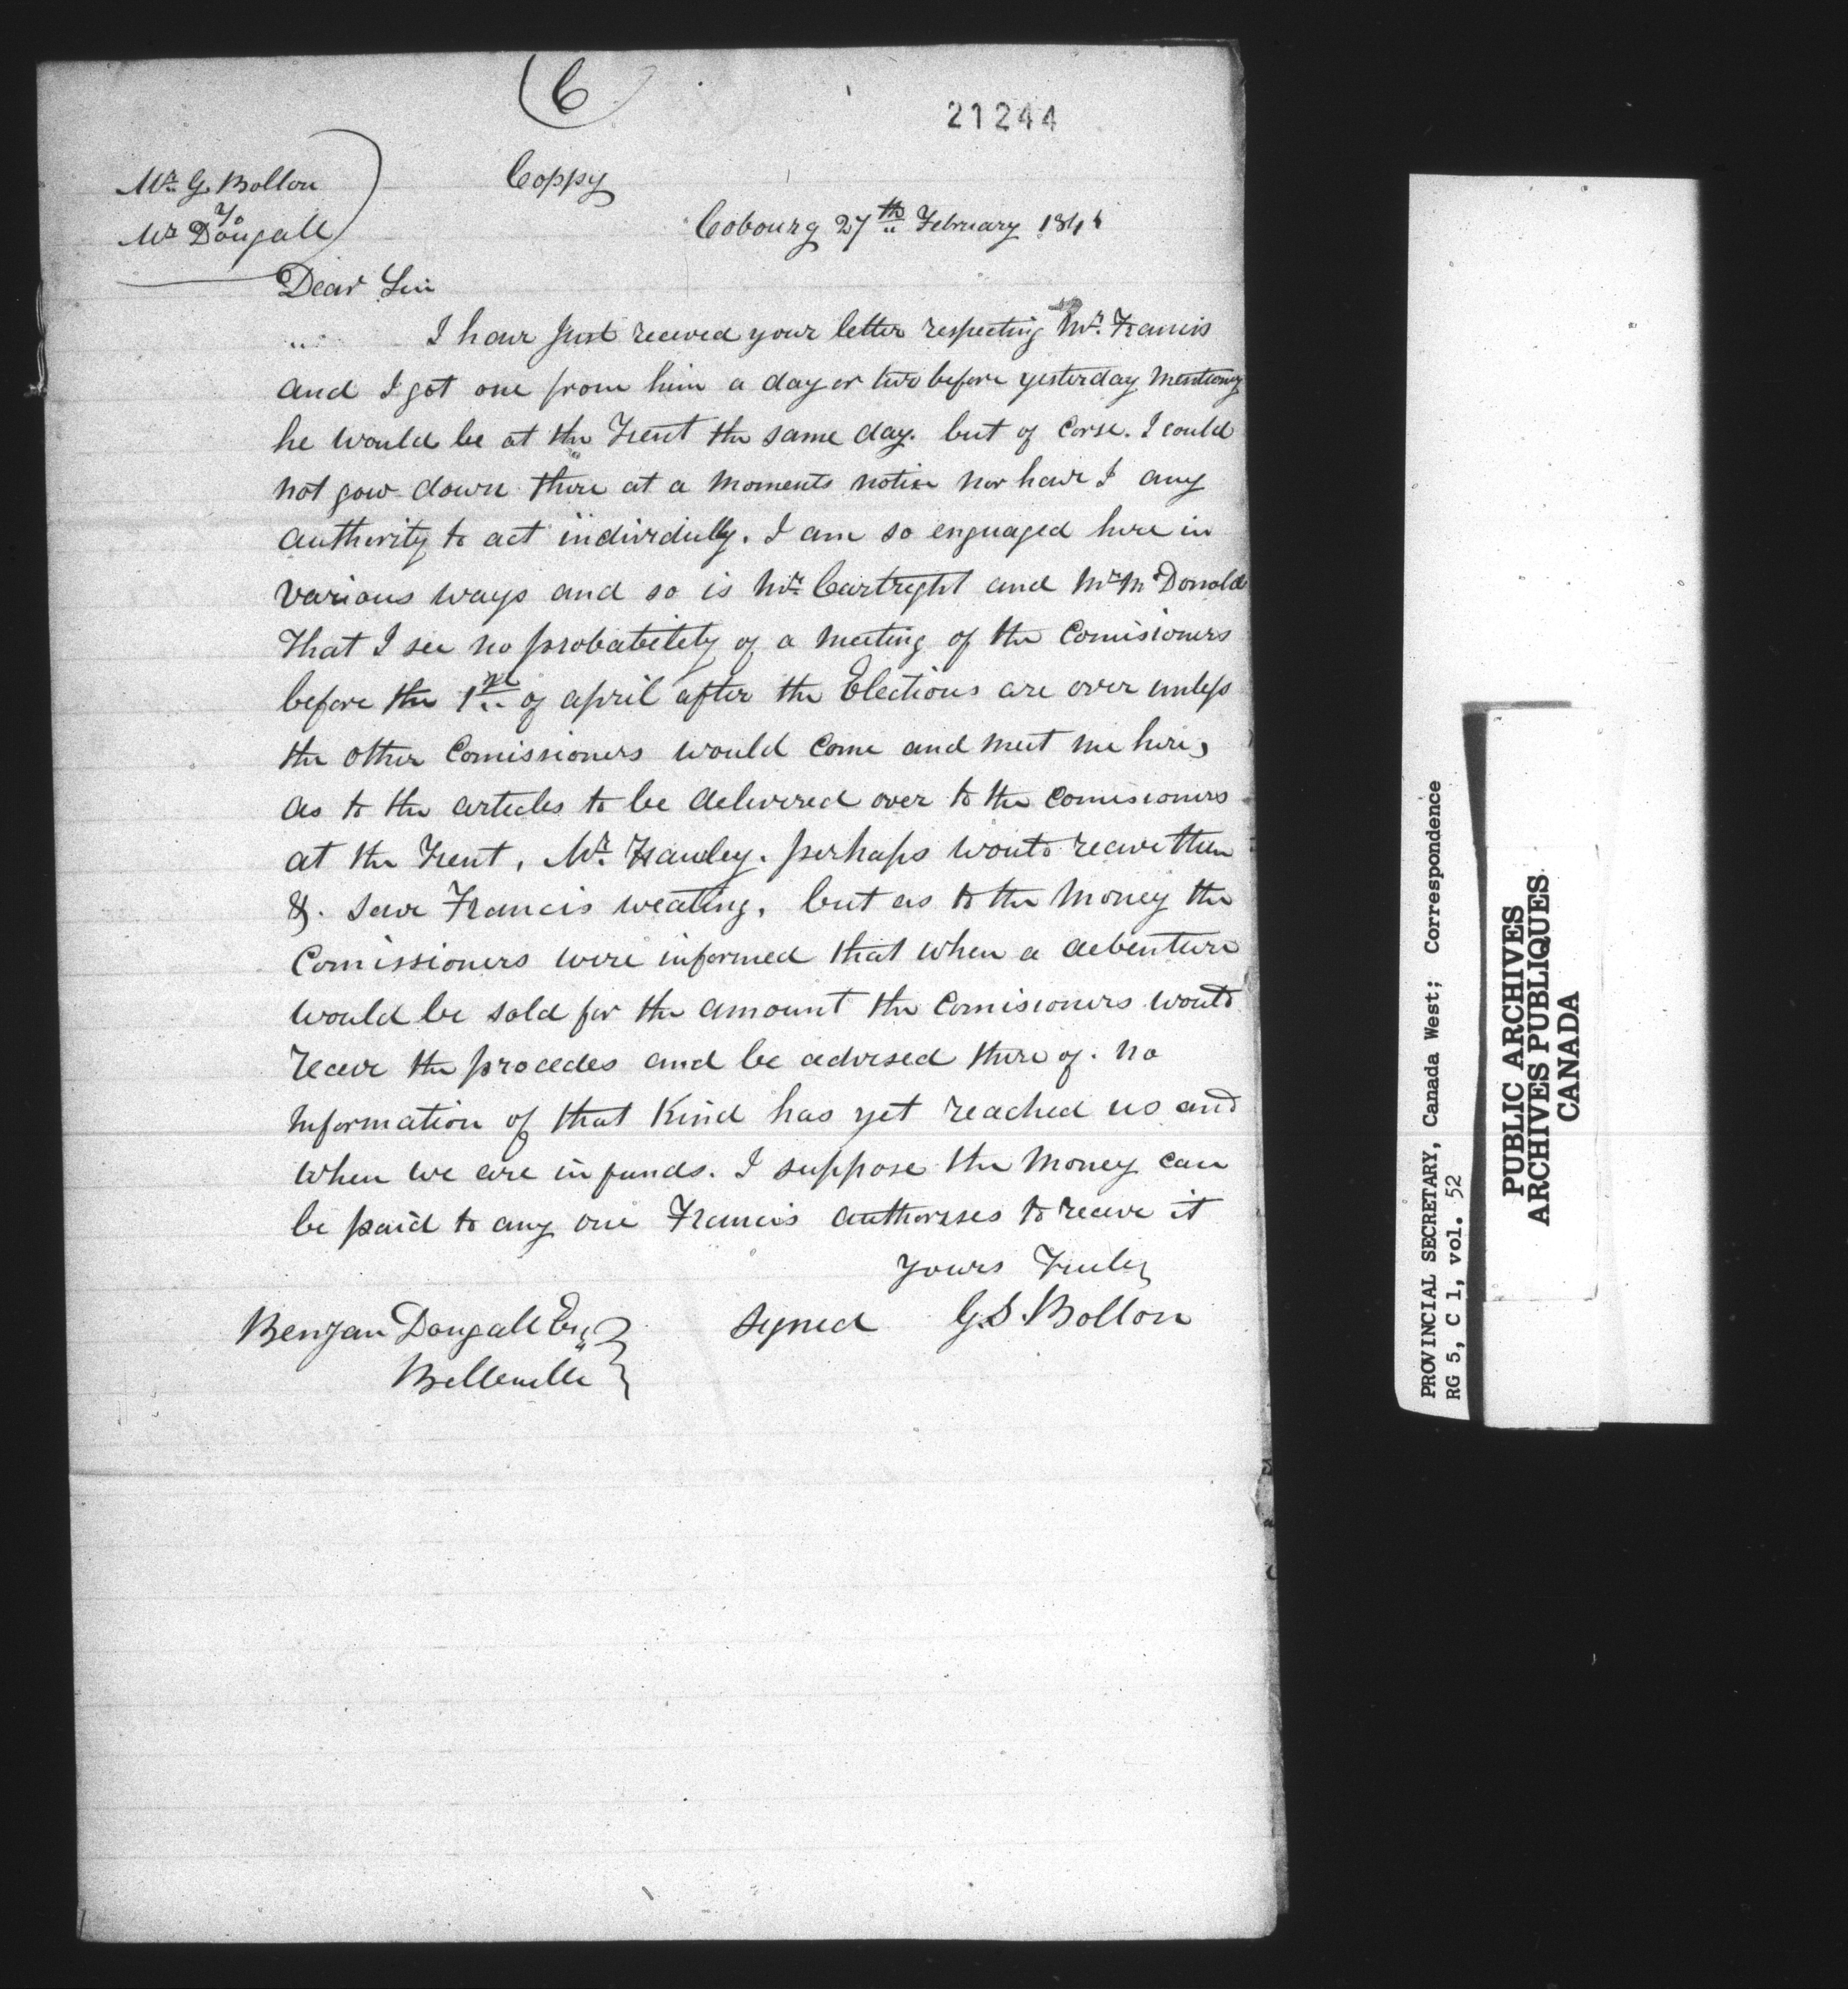 (6)
21244
Mr. G. Bolton
To
Mr Dougall
Coppy
Cobourg 27th February 1841
Dear Sir
I have just receved your letter respecting Mr. Francis
and I got one from him a day or two before yesterday mentiong
he would be at the Trent the same day. but of Corse. I could
not gow down there at a moments notise nor have I any
authority to act indivdully. I am so enguaged here in
various ways and so is Mr. Cartreght and Mr. McDonald
that I see no probabelety of a meeting of the Comisioners
before the 1st of april after the Elections are over unless
the other Comissioners would Come and meet me here,
as to the artecles to be delivered over to the Comisioners
at the Trent, Mr. Hawley. perhaps would receve them
&. save Francis weating. but as to the money the
Comissioners were informed that when a debenture
would be sold for the amount the Comisioners would
receve the procedes and be advised there of. no
information of that kind has yet reached us and
when we are in funds. I suppose the money can
be paid to any one Francis authorises to receve it
Yours Truley
Benjan Dougall Esq
Syned G.S. Bolton
Belleville
PROVINCIAL SECRETARY, Canada West; Correspondence
RG 5, C 1, vol. 52
PUBLIC ARCHIVES
ARCHIVES PUBLIQUES
CANADA